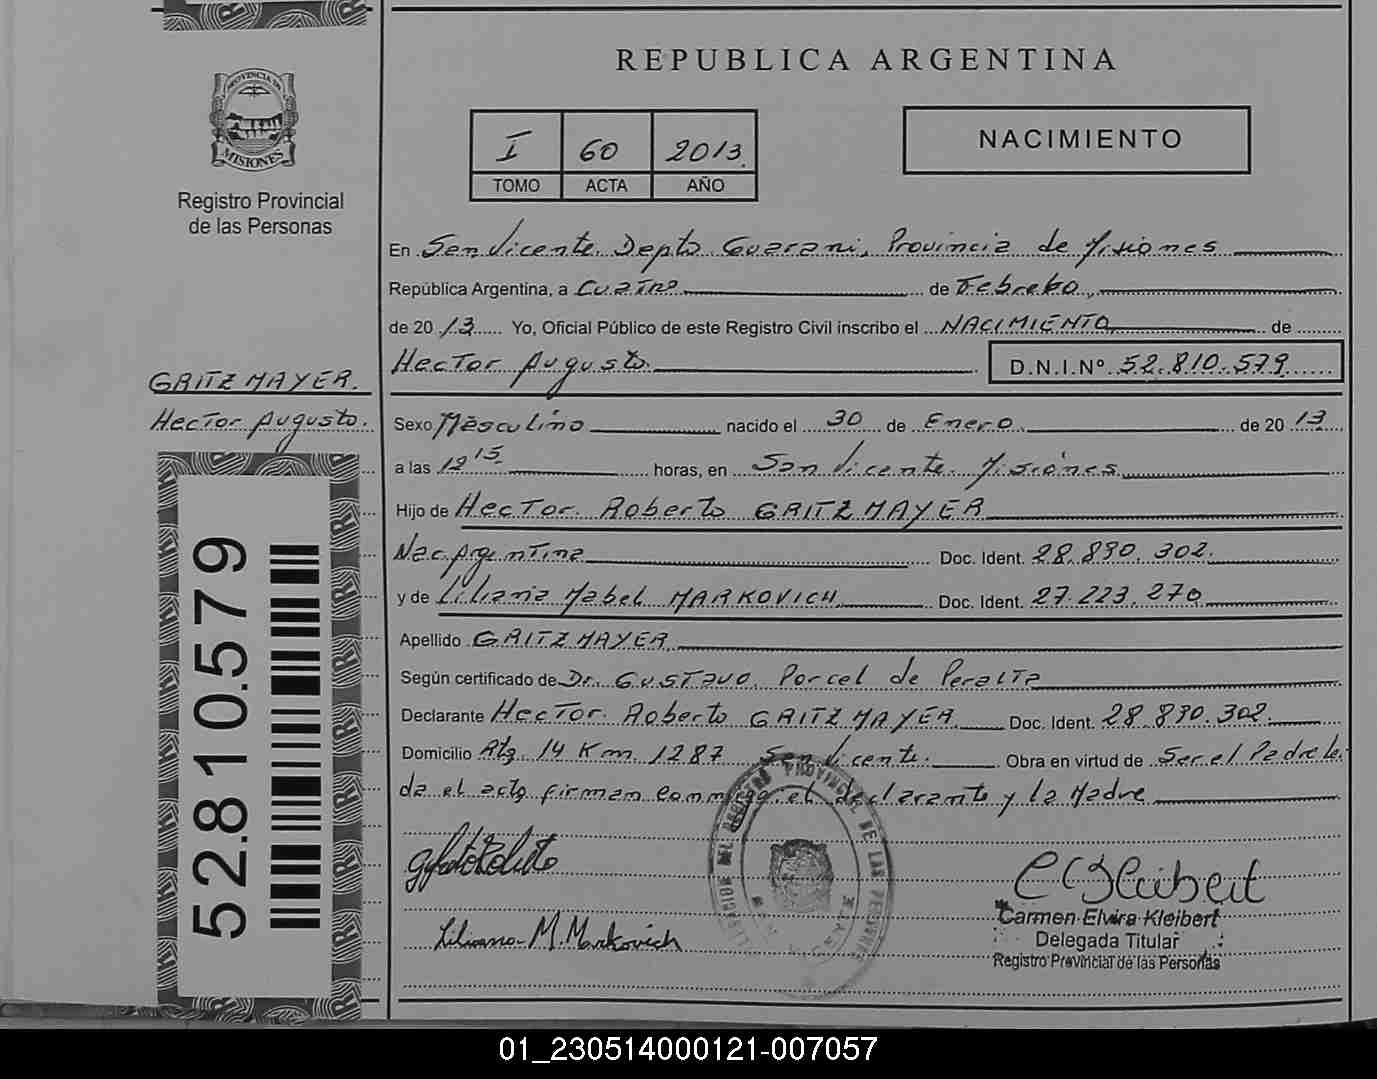 REPUBLICA ARGENTINA
PROVINCIA DE
MISIONES
Registro Provincial
de las Personas
I 60 2013.
TOMO ACTA AÑO
NACIMIENTO
En San Vicente Depto Guarani, Provincia de Misiones
República Argentina, a Cuatro de Febrero,
de 2013 Yo, Oficial Público de este Registro Civil inscribo el NACIMIENTO de
Hector Augusto D.N.I.Nº 52.810.579
GRITZMAYER.
Hector Augusto.
Sexo Masculino nacido el 30 de Enero de 2013
a las 12 15 horas, en San Vicente. Misiones
Hijo de Hector Roberto GRITZMAYER
Nac. Argentina Doc. Ident. 28.890.302.
y de Liliana Mabel MARKOVICH Doc. Ident. 27.223.270
Apellido GRITZMAYER
Según certificado de Dr. Gustavo Porcel de Peralta
Declarante Hector Roberto GRITZMAYER Doc. Ident. 28.890.302.
Domicilio Rta. 14 Km 1287 San Vicente. Obra en virtud de Ser el Padre lei
da el acta firman conmigo el declarante y la Madre
52.810.579
Liliana M. Markovich
Carmen Elvira Kleibert
Delegada Titular
Registro Provincial de las Personas
REGISTRO PROVINCIAL DE LAS PERSONAS
01_230514000121-007057